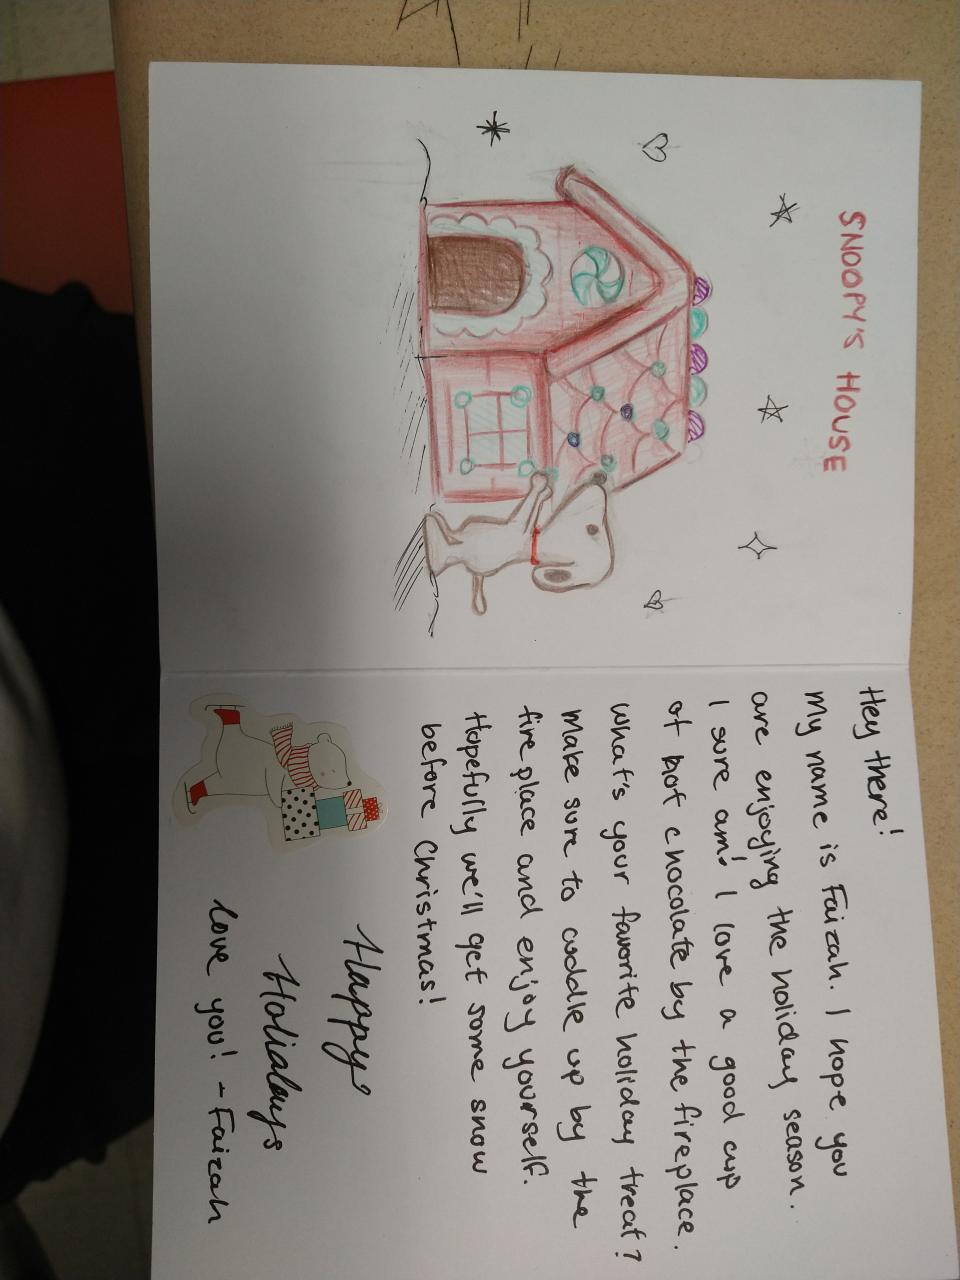 SNOOPY'S HOUSE
Hey there!
My name is Faizah. I hope you
are enjoying the holiday season.
I sure am! I love a good cup
of hot chocolate by the fireplace.
What's your favorite holiday treat?
Make sure to cuddle up by the
fireplace and enjoy yourself.
Hopefully we'll get some snow
before Christmas!
Happy
Holidays
love you! - Faizah